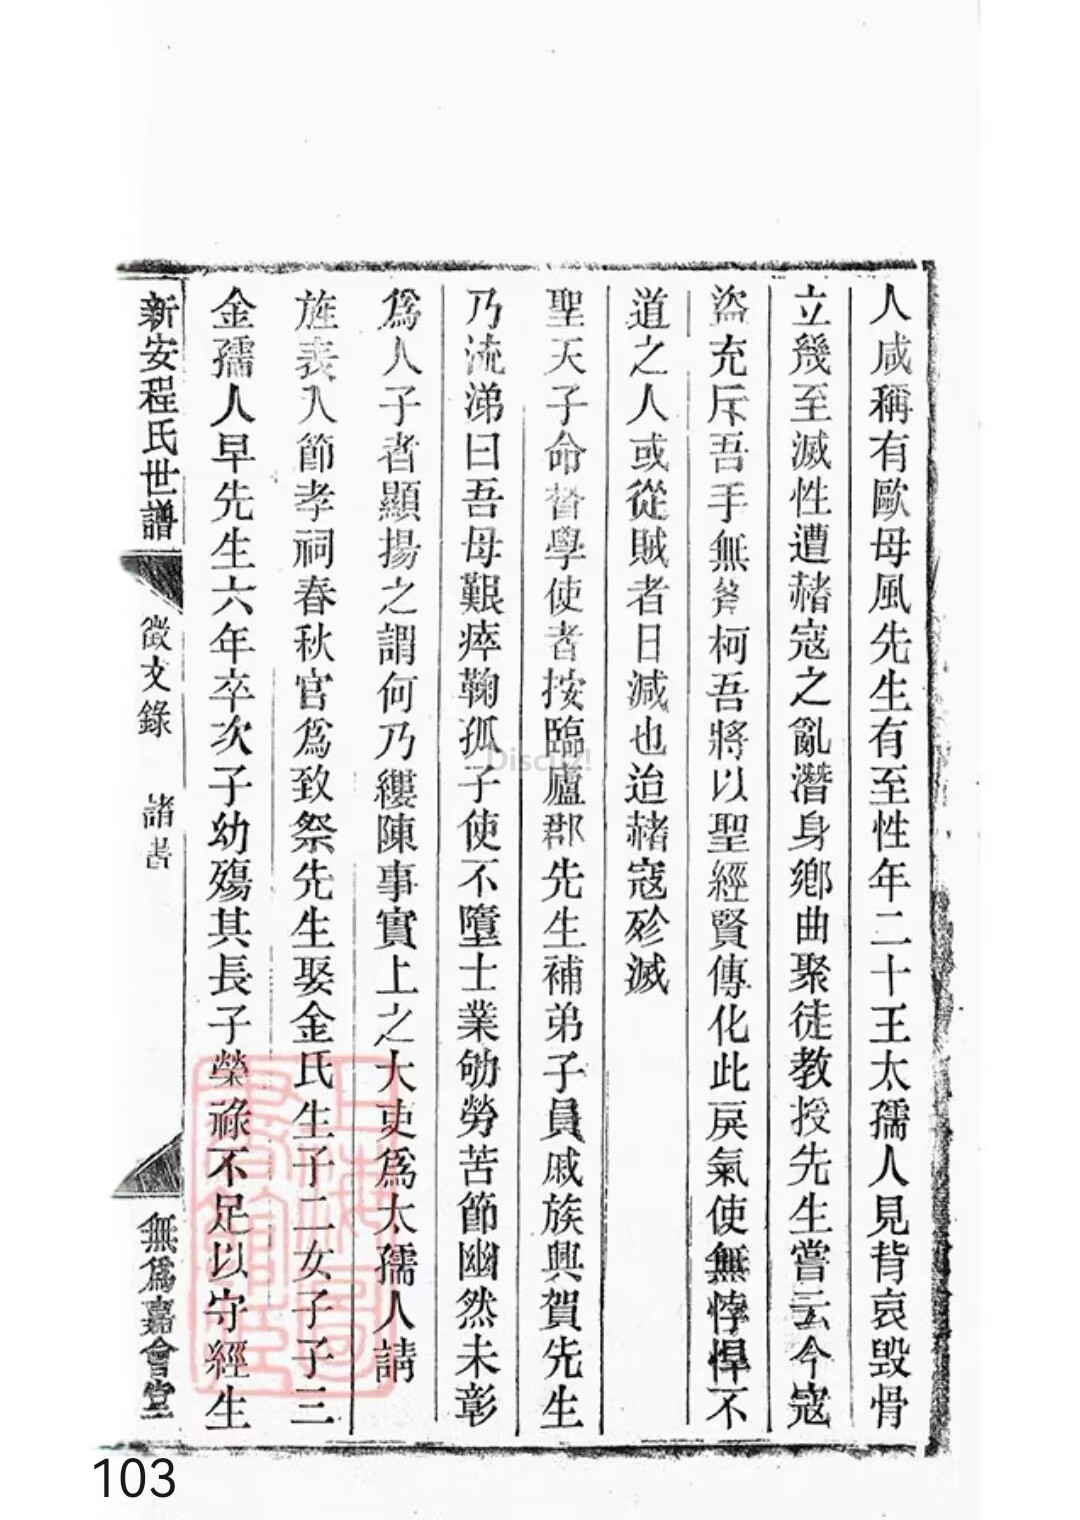 人咸稱有歐母風先生有至性年二十王太孺人見背哀毀骨
立幾至滅性遭赭寇之亂潛身鄉曲聚徒教授先生嘗云今寇
盜充斥吾手無斧柯吾將以聖經賢傳化此戾氣使無悖悍不
道之人或從賊者日減也迨赭寇殄滅
聖天子命督學使者按臨廬郡先生補弟子員戚族興賀先生
乃流涕曰吾母艱瘁鞠孤子使不墮士業劬勞苦節幽然未彰
爲人子者顯揚之謂何乃縷陳事實上之大吏爲太孺人請
旌表入節孝祠春秋官爲致祭先生娶金氏生子二女子子三
金孺人早先生六年卒次子幼殤其長子榮祿不足以守經生
新安程氏世譜
徵文錄 諸書
無爲嘉會堂
Discuz!
上海圖
書館藏
103